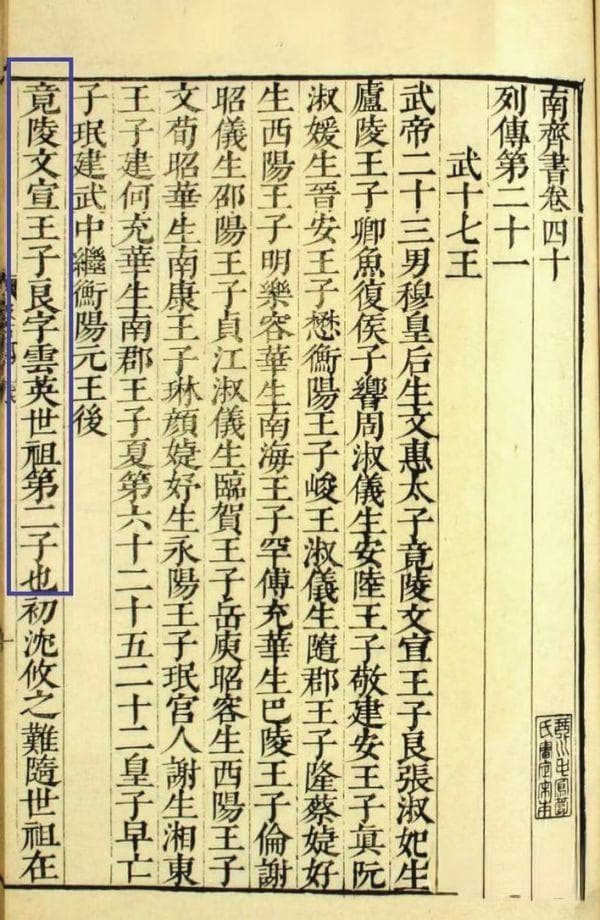 南齊書卷四十
列傳第二十一
武十七王
武帝二十三男穆皇后生文惠太子竟陵文宣王子良張淑妃生
廬陵王子卿魚復侯子響周淑儀生安陸王子敬建安王子眞阮
淑媛生晉安王子懋衡陽王子峻王淑儀生隨郡王子隆蔡婕妤
生西陽王子明樂容華生南海王子罕傅充華生巴陵王子倫謝
昭儀生邵陽王子貞江淑儀生臨賀王子岳庾昭容生西陽王子
文荀昭華生南康王子琳顏婕妤生永陽王子珉宮人謝生湘東
王子建何充華生南郡王子夏第六十二十五二十二皇子早亡
子珉建武中繼衡陽元王後
竟陵文宣王子良字雲英世祖第二子也初沈攸之難隨世祖在
琴川毛鳳苞
氏審定宋本